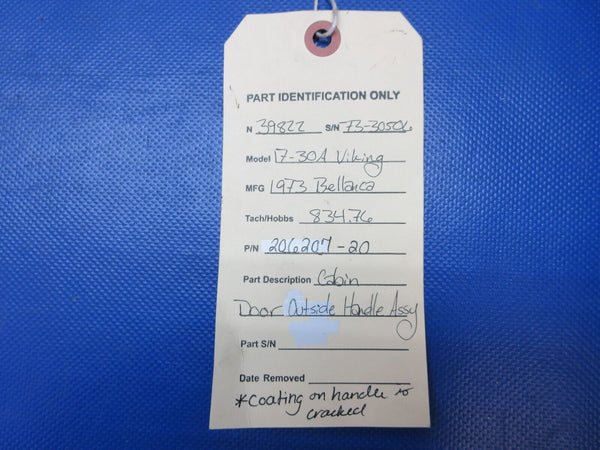 PART IDENTIFICATION ONLY
N 39822 S/N 73-30506
Model 17-30A Viking
MFG 1973 Bellanca
Tach/Hobbs 834.76
P/N 206207-20
Part Description Cabin
Door Outside Handle Assy
Part S/N
Date Removed
*Coating on handle is
cracked